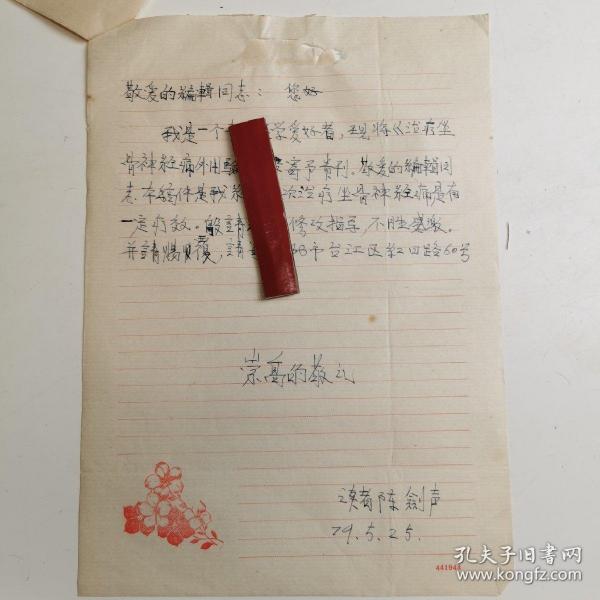 敬爱的编輯同志：您好
我是一个 学爱好者，现将《治疗坐
骨神经痛外用 寄予贵刊。敬爱的编輯同
志本稿件是我 次治疗坐骨神经痛是有
一定疗效。 請 修改指导，不胜感激。
并請賜回覆，請 市台江区 四路60号
崇高的敬礼
读者陈剑声
79.5.25.
441944
孔夫子旧书网
www.kongfz.com